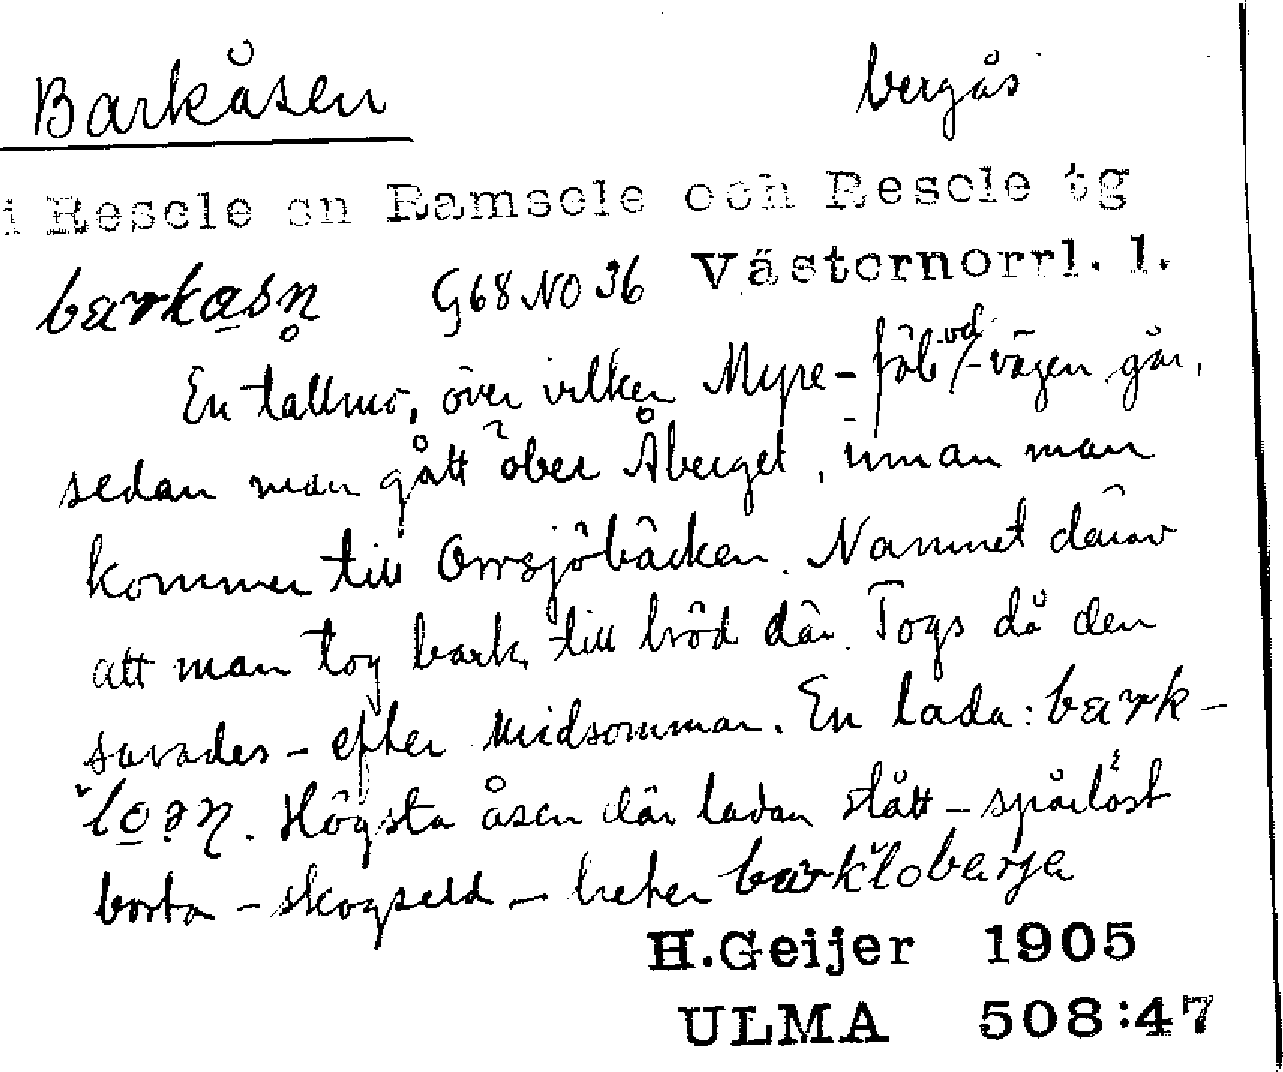 Barkåsen bergås
i Resele sn Ramsele och Resele tg
barkåsn G68 NO 36 Västernorrl. l.
En tallmo, över vilken Myre-fäbod-vägen går,
sedan man gått över Åberget, innan man
kommer till Orrsjöbäcken. Namnet därav
att man tog bark till bröd där. Togs då den
savades – efter midsommar. En lada: bark-
Högsta åsen där ladan stått – spårlöst
borta – skogseld – heter
H.Geijer 1905
ULMA 508:47